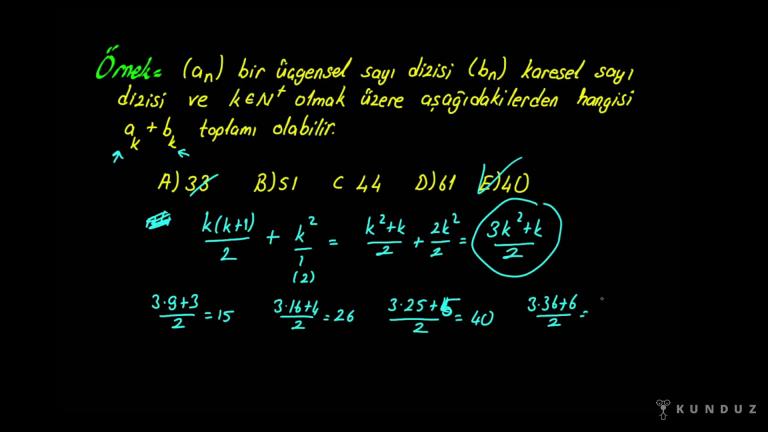 Örnek= (aₙ) bir üçgensel sayı dizisi (bₙ) karesel sayı
dizisi ve k∈N⁺ olmak üzere aşağıdakilerden hangisi
aₖ + bₖ toplamı olabilir.
A) 33 B) 51 C 44 D) 61 E) 40
k(k+1)/2 + k²/1 = k²+k/2 + 2k²/2 = 3k²+k/2
(2)
3·9+3/2 = 15 3·16+4/2 = 26 3·25+5/2 = 40 3·36+6/2 =
KUNDUZ